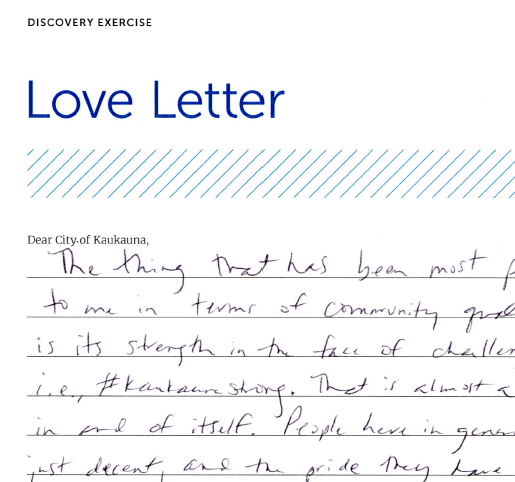 DISCOVERY EXERCISE
Love Letter
Dear City of Kaukauna,
The thing that has been most
to me in terms of community
is its strength in the face of
i.e., #kaukaunastrong. That is almost a
in and of itself. People here in
just decent, and the pride they have